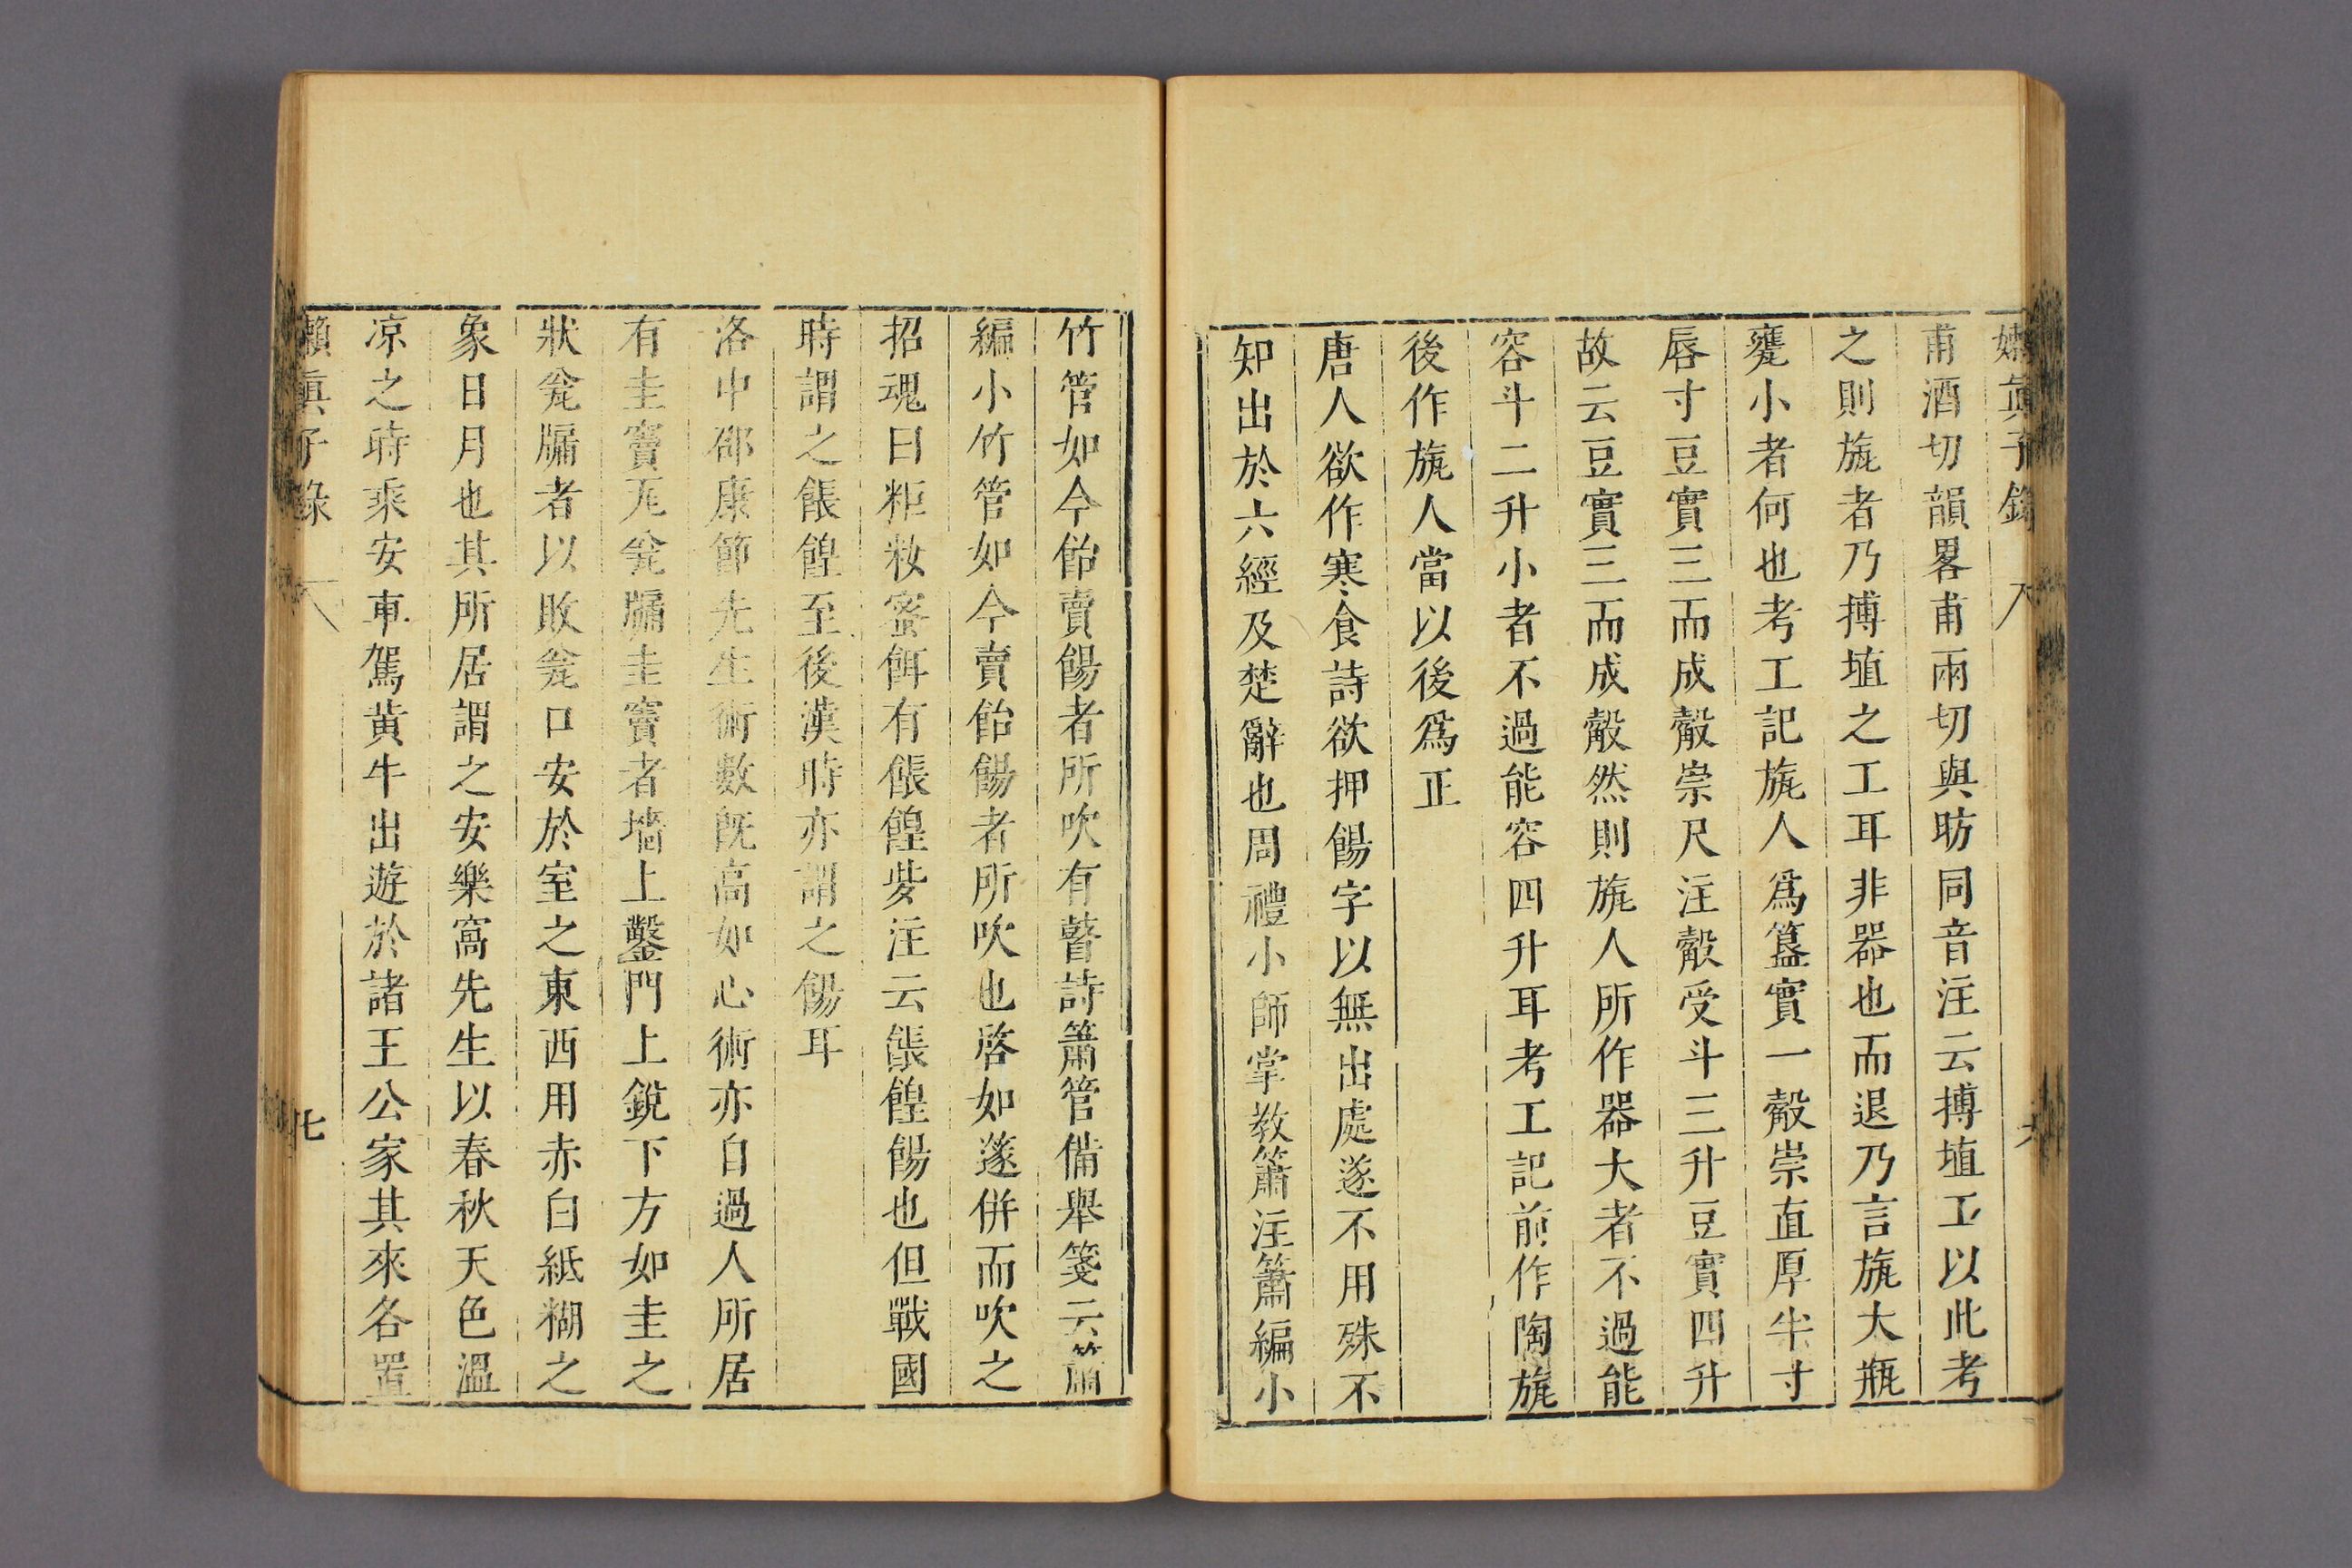 嬾眞子錄 八 六
甫酒切韻畧甫兩切與昉同音注云搏埴工以此考
之則旊者乃搏埴之工耳非器也而退乃言旊大瓶
甕小者何也考工記旊人爲簋實一觳崇直厚半寸
唇寸豆實三而成觳崇尺注觳受斗三升豆實四升
故云豆實三而成觳然則旊人所作器大者不過能
容斗二升小者不過能容四升耳考工記前作陶旊
後作旊人當以後爲正
唐人欲作寒食詩欲押餳字以無出處遂不用殊不
知出於六經及楚辭也周禮小師掌教簫注簫編小
竹管如今飴賣餳者所吹有瞽詩簫管備舉箋云簫
編小竹管如今賣飴餳者所吹也啓如遂併而吹之
招魂曰粔籹蜜餌有餦餭些注云餦餭餳也但戰國
時謂之餦餭至後漢時亦謂之餳耳
洛中邵康節先生術數旣高如心術亦自過人所居
有圭竇瓦瓮牖圭竇者墻上鑿門上銳下方如圭之
狀瓮牖者以敗瓮口安於室之東西用赤白紙糊之
象日月也其所居謂之安樂窩先生以春秋天色溫
凉之時乘安車駕黃牛出遊於諸王公家其來各置
嬾眞子錄 八 七